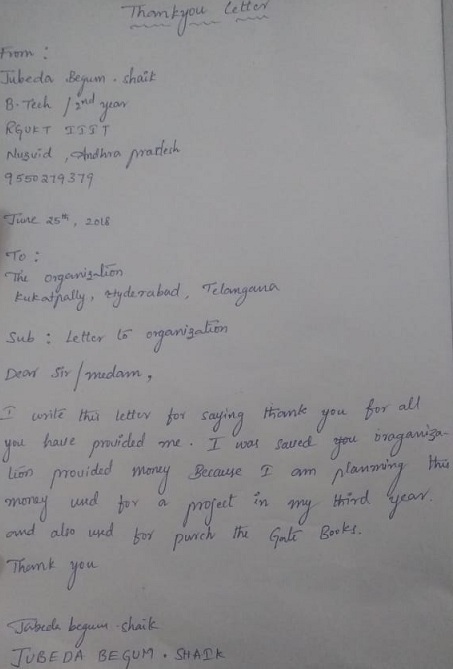 Thankyou Letter
From :
Jubeda Begum . shaik
B.Tech / 2nd year
RGUKT IIIT
Nuzvid , Andhra pradesh
9550279379
June 25th, 2018
To :
The organization
Kukatpally, Hyderabad, Telangana
Sub : Letter to organization
Dear Sir / medam,
I write this letter for saying thank you for all
you have provided me . I was saved you oraganiza-
tion provided money Because I am planning this
money used for a project in my third year.
and also used for purch the Gate Books.
Thank you
Jabeda begum . shaik
JUBEDA BEGUM . SHAIK